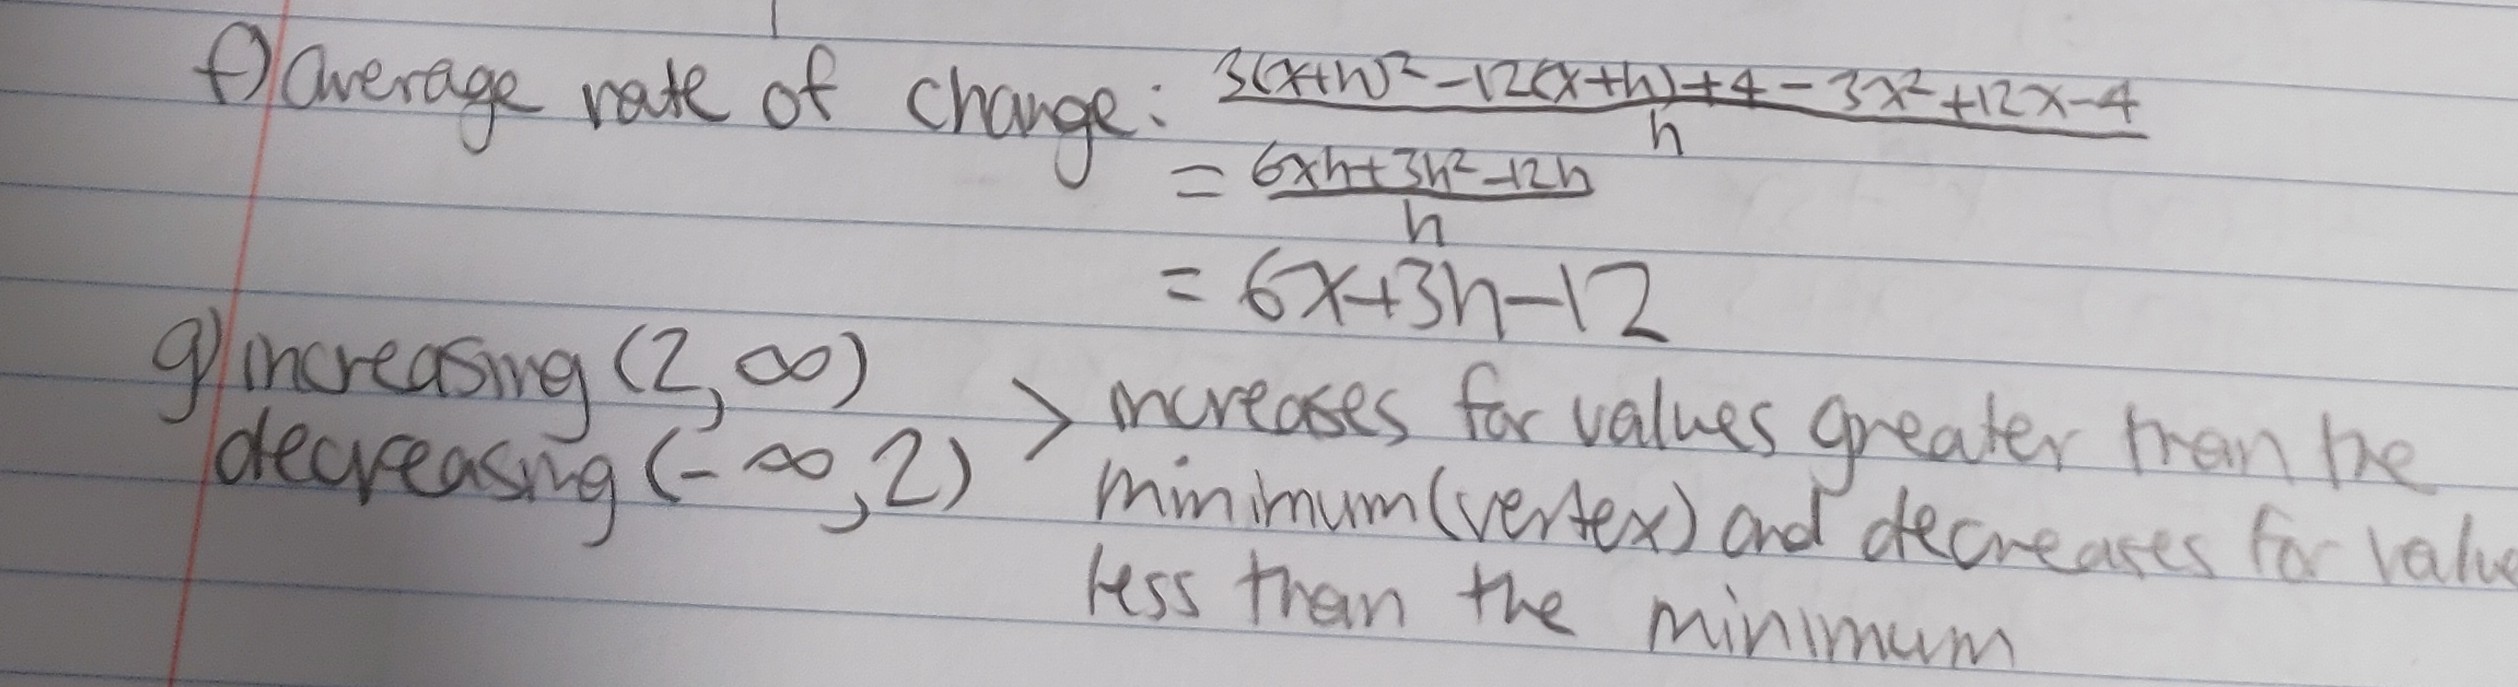 f) average rate of change: 3(x+h)²-12(x+h)+4-3x²+12x-4 / h
= 6xh+3h²-12h / h
= 6x+3h-12
g) increasing (2, ∞)
decreasing (-∞, 2) > increases for values greater than the
minimum (vertex) and decreases for value
less than the minimum